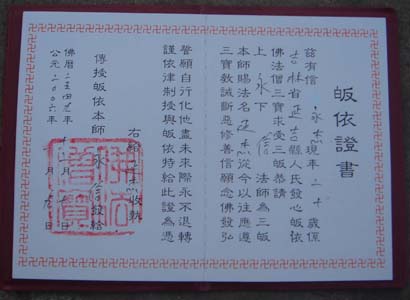 皈依證書
茲有信 永 現年二十 歲係
吉林省 延吉縣人氏發心皈依
佛法僧三寶求受三皈恭請
上永下信法師為三皈
本師賜法名延 從今以往應遵
三寶教誡斷惡修善信願念佛發弘
誓願自行化他盡未來際永不退轉
謹依律制授與皈依特給此證為憑
右給 收執
傳授皈依本師 永信 發給
佛曆二五四 年十 月 日
公元二00六年 月 日